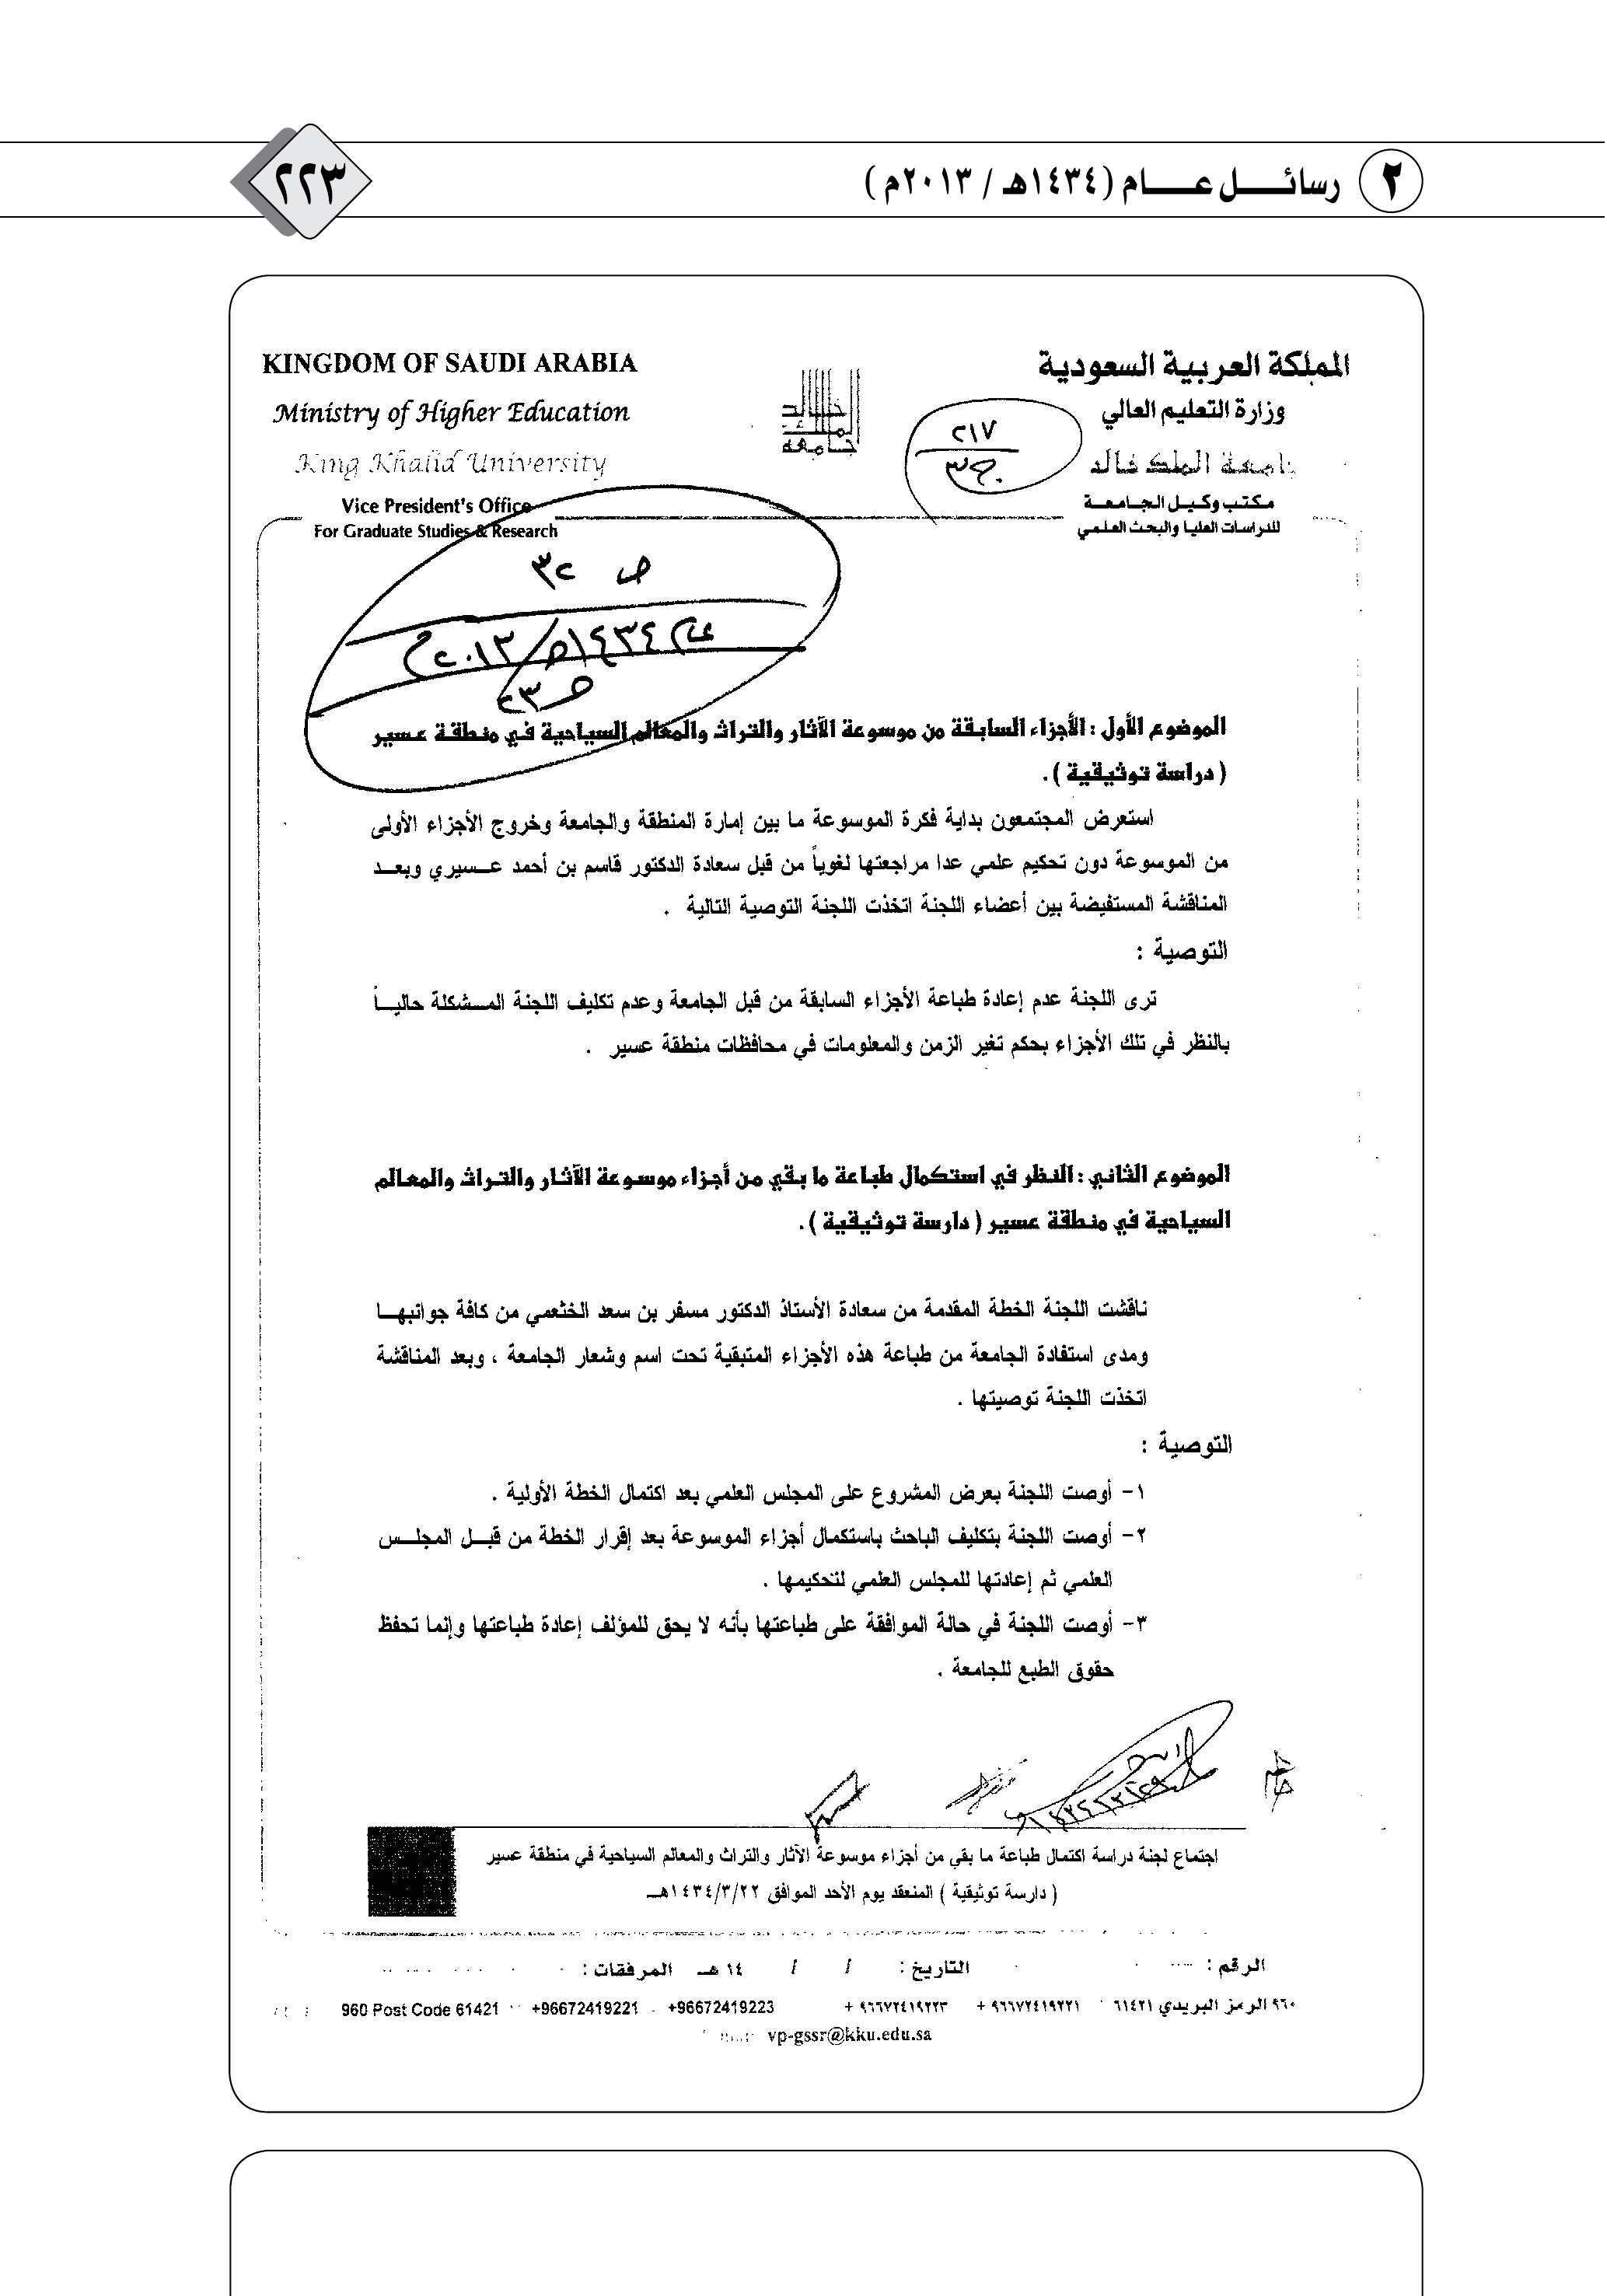 ٢ رسائل عام (١٤٣٤هـ / ٢٠١٣م)
٢٢٣
KINGDOM OF SAUDI ARABIA
المملكة العربية السعودية
Ministry of Higher Education
وزارة التعليم العالي
King Khalid University
جامعة الملك خالد
Vice President's Office
مكتب وكيل الجامعة
For Graduate Studies & Research
للدراسات العليا والبحث العلمي
جامعة الملك خالد
٢١٧
ج٣
ص ٣٢
عام ١٤٣٤هـ/٢٠١٣م
ص ٢٣
الموضوع الأول : الأجزاء السابقة من موسوعة الآثار والتراث والمعالم السياحية في منطقة عسير
( دراسة توثيقية ) .
استعرض المجتمعون بداية فكرة الموسوعة ما بين إمارة المنطقة والجامعة وخروج الأجزاء الأولى
من الموسوعة دون تحكيم علمي عدا مراجعتها لغوياً من قبل سعادة الدكتور قاسم بن أحمد عسيري وبعد
المناقشة المستفيضة بين أعضاء اللجنة اتخذت اللجنة التوصية التالية .
التوصية :
ترى اللجنة عدم إعادة طباعة الأجزاء السابقة من قبل الجامعة وعدم تكليف اللجنة المشكلة حالياً
بالنظر في تلك الأجزاء بحكم تغير الزمن والمعلومات في محافظات منطقة عسير .
الموضوع الثاني : النظر في استكمال طباعة ما بقي من أجزاء موسوعة الآثار والتراث والمعالم
السياحية في منطقة عسير ( دارسة توثيقية ) .
ناقشت اللجنة الخطة المقدمة من سعادة الأستاذ الدكتور مسفر بن سعد الخثعمي من كافة جوانبها
ومدى استفادة الجامعة من طباعة هذه الأجزاء المتبقية تحت اسم وشعار الجامعة ، وبعد المناقشة
اتخذت اللجنة توصيتها .
التوصية :
١- أوصت اللجنة بعرض المشروع على المجلس العلمي بعد اكتمال الخطة الأولية .
٢- أوصت اللجنة بتكليف الباحث باستكمال أجزاء الموسوعة بعد إقرار الخطة من قبل المجلس
العلمي ثم إعادتها للمجلس العلمي لتحكيمها .
٣- أوصت اللجنة في حالة الموافقة على طباعتها بأنه لا يحق للمؤلف إعادة طباعتها وإنما تحفظ
حقوق الطبع للجامعة .
اجتماع لجنة دراسة اكتمال طباعة ما بقي من أجزاء موسوعة الآثار والتراث والمعالم السياحية في منطقة عسير
( دارسة توثيقية ) المنعقد يوم الأحد الموافق ١٤٣٤/٣/٢٢هـ
الرقم : التاريخ : / / ١٤ هـ المرفقات :
٩٦٠ الرمز البريدي ٦١٤٢١ ٩٦٦٧٢٤١٩٢٢١ + ٩٦٦٧٢٤١٩٢٢٣ +
960 Post Code 61421 +96672419221 +96672419223
vp-gssr@kku.edu.sa